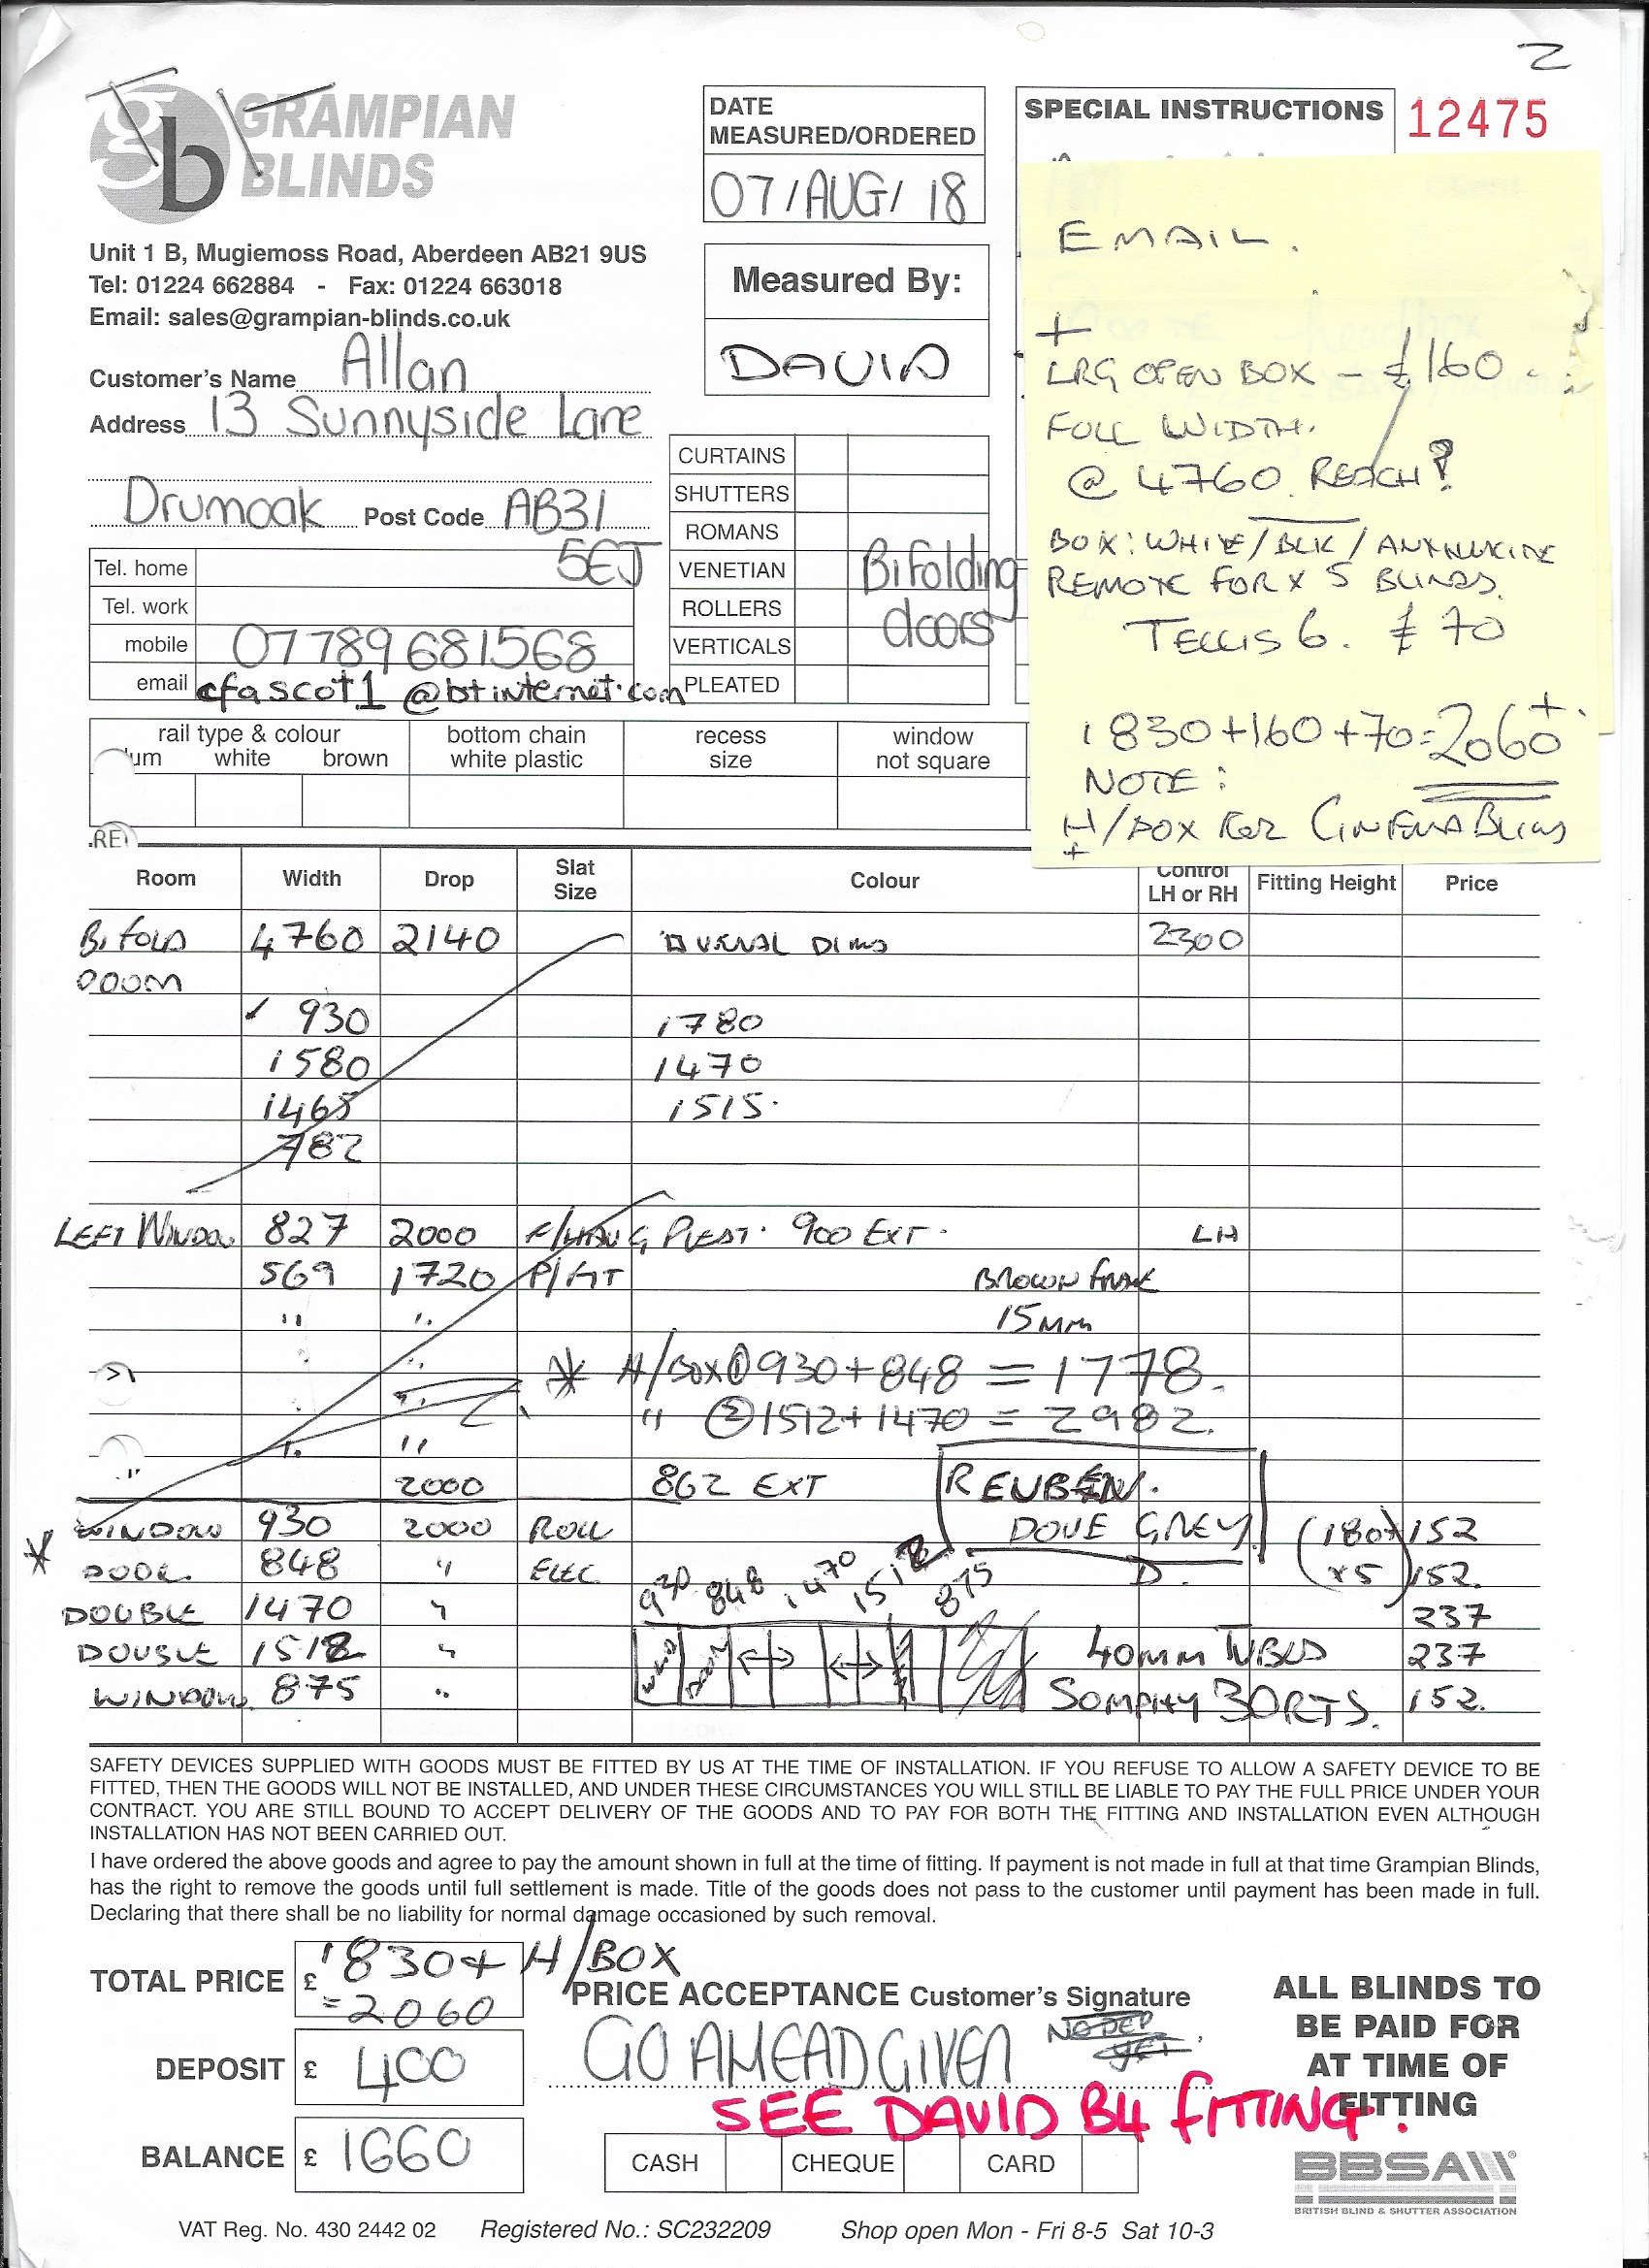 2
GRAMPIAN
BLINDS
Unit 1 B, Mugiemoss Road, Aberdeen AB21 9US
Tel: 01224 662884 - Fax: 01224 663018
Email: sales@grampian-blinds.co.uk
Customer's Name Allan
Address 13 Sunnyside Lane
Drumoak Post Code AB31
5EJ
Tel. home
Tel. work
mobile 07789681568
email cfascot1@btinternet.com
DATE
MEASURED/ORDERED
07/AUG/18
Measured By:
DAVID
CURTAINS
SHUTTERS
ROMANS
VENETIAN
ROLLERS
VERTICALS
PLEATED
Bifolding
doors
SPECIAL INSTRUCTIONS
12475
EMAIL.
+
LRG OPEN BOX - £160
FULL WIDTH.
@ 4760. REACH?
BOX: WHITE/BLK/
REMOTE FOR x 5 BLINDS.
TELLIS 6. £70
1830+160+70=2060
NOTE:
H/BOX FOR CINEMA BLINDS
+
rail type & colour
white brown
bottom chain
white plastic
recess
size
window
not square
Room Width Drop Slat Size Colour Control LH or RH Fitting Height Price
BIFOLD 4760 2140 OVERAL DIMS 2300
DOOM
930 1780
1580 1470
1465 1515.
782
LEFT WINDOW 827 2000 PLEAT. 900 EXT. LH
569 1720 P/FIT BROWN FRAME
" " 15mm
* H/BOX ① 930+848 = 1778.
" ② 1512+1470 = 2982.
" "
2000 862 EXT REUBEN.
DOVE GREY
WINDOW 930 2000 ROLL (180+ 152
* DOOR 848 " ELEC x5) 152.
930 848 1470 1512 875
D.
DOUBLE 1470 " 237
DOUBLE 1512 " 40mm TUBES 237
WINDOW 875 " SOMPHY 30RTS. 152.
SAFETY DEVICES SUPPLIED WITH GOODS MUST BE FITTED BY US AT THE TIME OF INSTALLATION. IF YOU REFUSE TO ALLOW A SAFETY DEVICE TO BE
FITTED, THEN THE GOODS WILL NOT BE INSTALLED, AND UNDER THESE CIRCUMSTANCES YOU WILL STILL BE LIABLE TO PAY THE FULL PRICE UNDER YOUR
CONTRACT. YOU ARE STILL BOUND TO ACCEPT DELIVERY OF THE GOODS AND TO PAY FOR BOTH THE FITTING AND INSTALLATION EVEN ALTHOUGH
INSTALLATION HAS NOT BEEN CARRIED OUT.
I have ordered the above goods and agree to pay the amount shown in full at the time of fitting. If payment is not made in full at that time Grampian Blinds,
has the right to remove the goods until full settlement is made. Title of the goods does not pass to the customer until payment has been made in full.
Declaring that there shall be no liability for normal damage occasioned by such removal.
TOTAL PRICE £ 1830+ H/BOX
=2060
DEPOSIT £ 400
BALANCE £ 1660
PRICE ACCEPTANCE Customer's Signature
GO AHEAD GIVEN NO DEP
YET
SEE DAVID B4 FITTING.
CASH CHEQUE CARD
ALL BLINDS TO
BE PAID FOR
AT TIME OF
FITTING
BBSA
BRITISH BLIND & SHUTTER ASSOCIATION
VAT Reg. No. 430 2442 02 Registered No.: SC232209 Shop open Mon - Fri 8-5 Sat 10-3